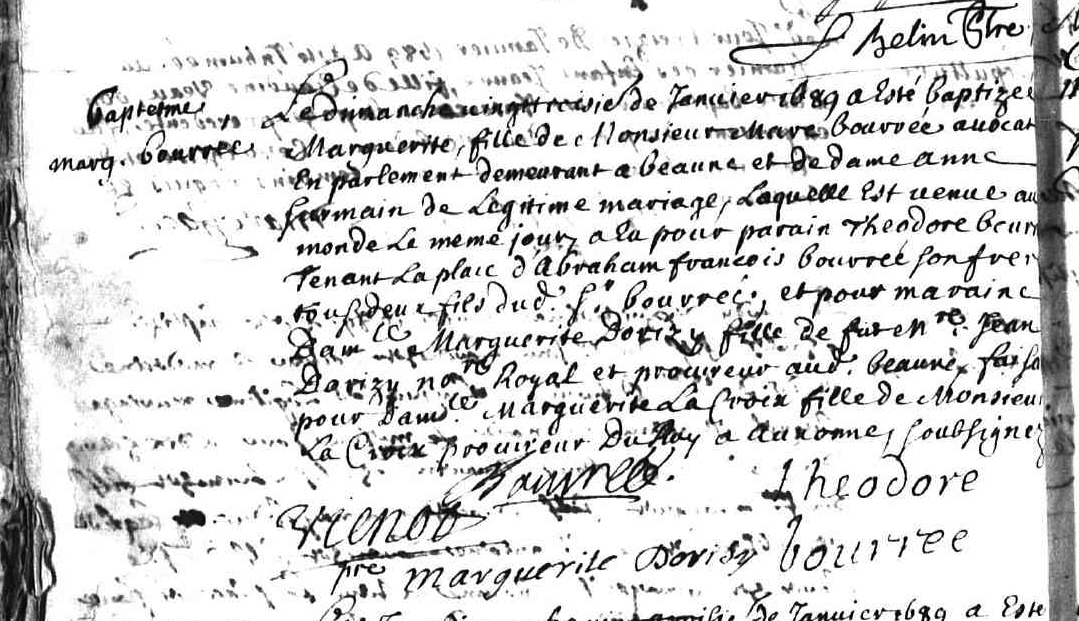 Thelin Ptre
Baptesme
marg. bourree
Le dimanche vingttroisie de Janvier 1689 a Esté baptizee
Marguerite, fille de Monsieur Marc bourreé avocat
En parlement demeurant a beaune et de dame anne
de Legitime mariage, Laquelle Est venue au
monde Le meme jour, a Eu pour parain Theodore bourr
Tenant La place d'Abraham francois bourreé son frer
tous deux fils dud. Sr. bourreé, et pour maraine
Damlle Marguerite Dorizy fille de fut Mre. Jean
Darizy nore Royal et procureur aud. beaune, faisa
pour Damlle. Marguerite La Croix fille de Monsieu
La Croix procureur Du Roy a Auxonne, soubsignez
Bourreé. Theodore
Vienot
pre Marguerite Dorisy bourree
de Janvier 1689 a Esté